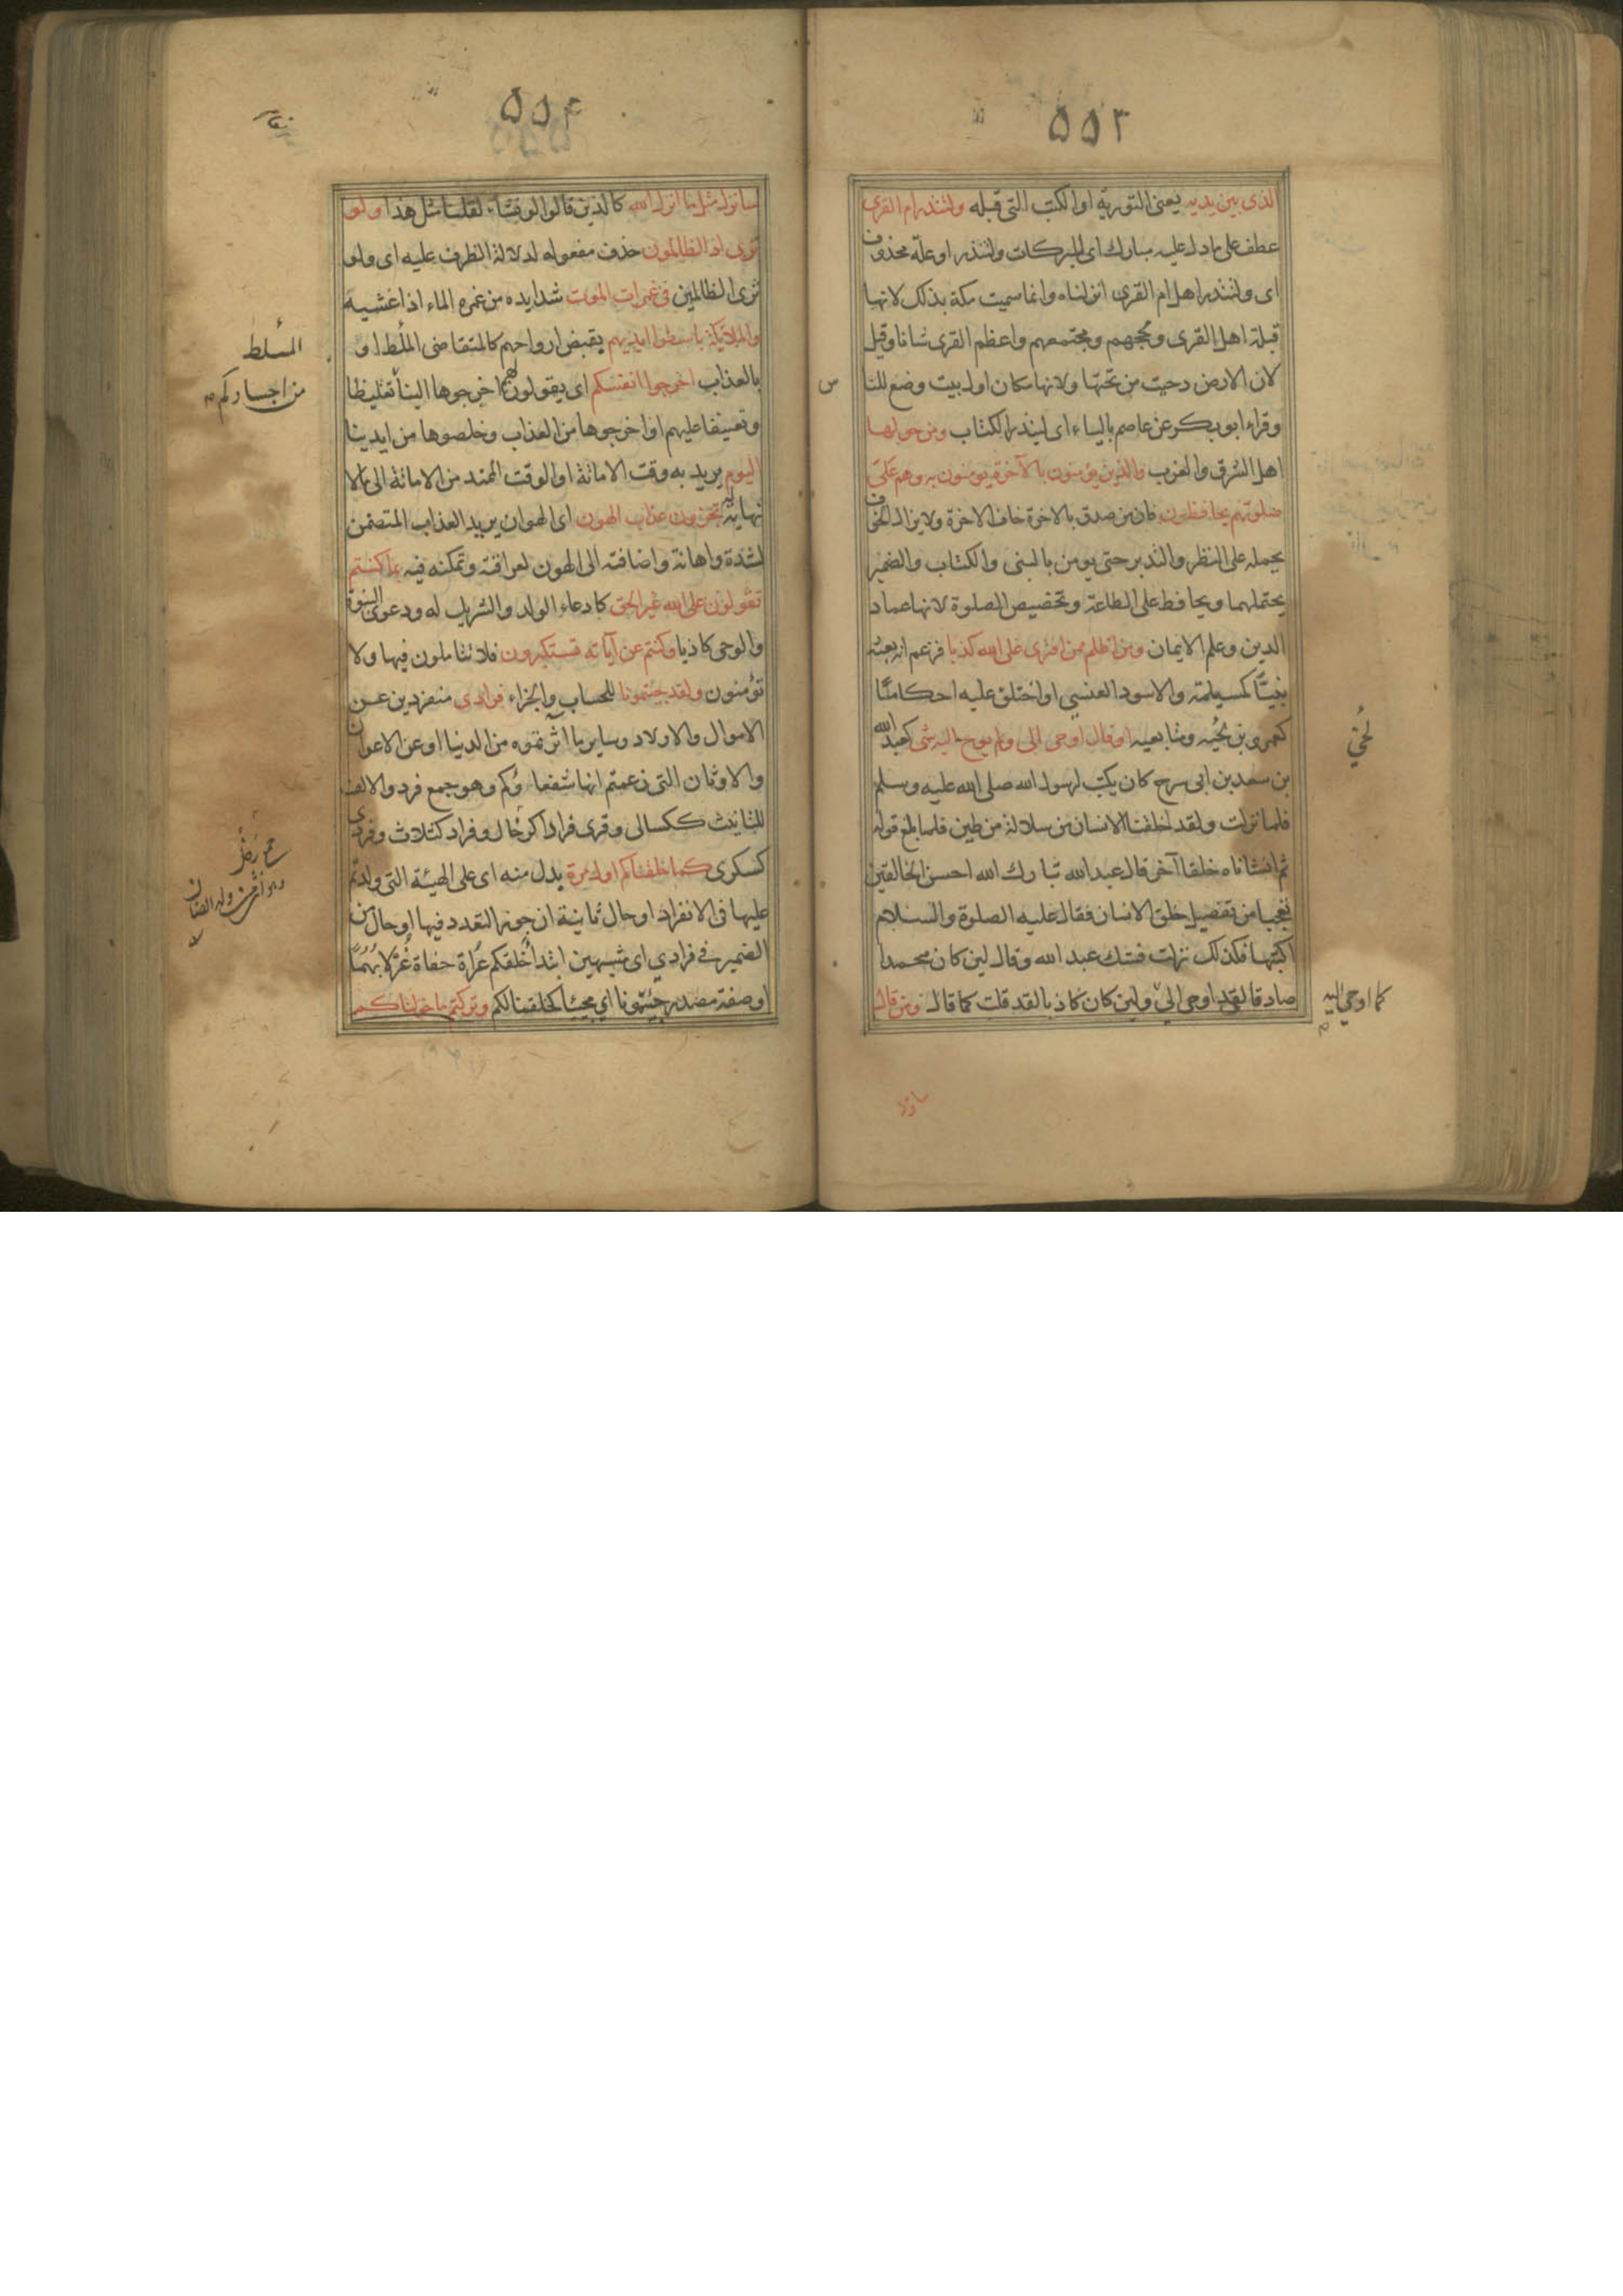 ۵۵۳
الذى بين يديه يعنى التورية او الكتب التى قبله ولتنذر ام القرى
عطف على ما دل عليه مبارك اى للبركات ولتنذر او علة محذوف
اى ولتنذر اهل ام القرى انزلناه وانما سميت مكة بذلك لانها
قبلة اهل القرى ومحجهم ومجتمعهم واعظم القرى شانا وقيل
لان الارض دحيت من تحتها ولانها مكان اول بيت وضع للنا
س
وقراء ابو بكر عن عاصم بالياء اى لينذر الكتاب ومن حولها
اهل الشرق والغرب والذين يؤمنون بالآخرة يومنون به وهم على
صلوتهم يحافظون فان من صدق بالاخرة خاف الاخرة ولا يزال الخوف
يحمله على النظر والتدبر حتى يومن بالنبى والكتاب والضمير
يحتملهما ويحافظ على الطاعة وتخصيص الصلوة لانها عماد
الدين وعلم الايمان ومن اظلم ممن افترى على الله كذبا فزعم انه بعثه
نبيّا كمسيلمة والاسود العنسي او اختلق عليه احكاما
كعمرو بن لحيه ومتابعيه او قال اوحى الى ولم يوح اليه شى كعبد الله
لُحَيّ
بن سعد بن ابى سرح كان يكتب لرسول الله صلى الله عليه وسلم
فلما نزلت ولقد خلقنا الانسان من سلالة من طين فلما بلغ قوله
ثم انشاناه خلقا آخر قال عبد الله تبارك الله احسن الخالقين
تعجبا من تفصيل خلق الانسان فقال عليه الصلوة والسلام
اكتبها فكذلك نزلت فشك عبد الله وقال لين كان محمدا
صادقا لقد اوحى الىّ ولين كان كاذبا لقد قلت كما قال ومن قال
كما اوحي اليه
سانزل
۵۵۴
سانزل مثل ما انزل الله كالذين قالوا لو نشاء لقلنا مثل هذا ولو
ترى اذ الظالمون حذف مفعوله لدلالة الظرف عليه اى ولو
ترى الظالمين فى غمرات الموت شدايده من غمره الماء اذا غشيه
والملايكة باسطوا ايديهم يقبض ارواحهم كالمتقاضى الملظ او
المسلط
بالعذاب اخرجوا انفسكم اى يقولون لهم اخرجوها الينا تغليظا
من اجسادكم
وتعنيفا عليهم او اخرجوها من العذاب وخلصوها من ايدينا
اليوم يريد به وقت الاماتة او الوقت الممتد من الاماتة الى مالا
نهاية له تجزون عذاب الهون اى الهوان يريد العذاب المتضمن
لشدة واهانة واضافته الى الهون لعراقته وتمكنه فيه بما كنتم
تقولون على الله غير الحق كادعاء الولد والشريك له ودعوى النبوة
والوحى كاذبا وكنتم عن آياته تستكبرون فلا تتاملون فيها ولا
تؤمنون ولقد جئتمونا للحساب والجزاء فرادى منفردين عن
الاموال والاولاد وساير ما آثرتموه من الدنيا او عن الاعوان
والاوثان التى زعمتم انها شفعاؤكم وهو جمع فرد والالف
للتانيث ككسالى وقرى فرادا كرخال وفراد كثلاث وفردى
كسكرى كما خلقناكم اول مرة بدل منه اى على الهيئة التى ولدتم
عليها فى الانفراد او حال ثانية ان جوز التعدد فيها او حال من
الضمير في فرادي اى مشبهين ابتدا خلقكم عراة حفاة غُرْلًا بُهمًا
او صفة مصدر جئتمونا اي مجيئا كخلقنا لكم وتركتم ما خولناكم